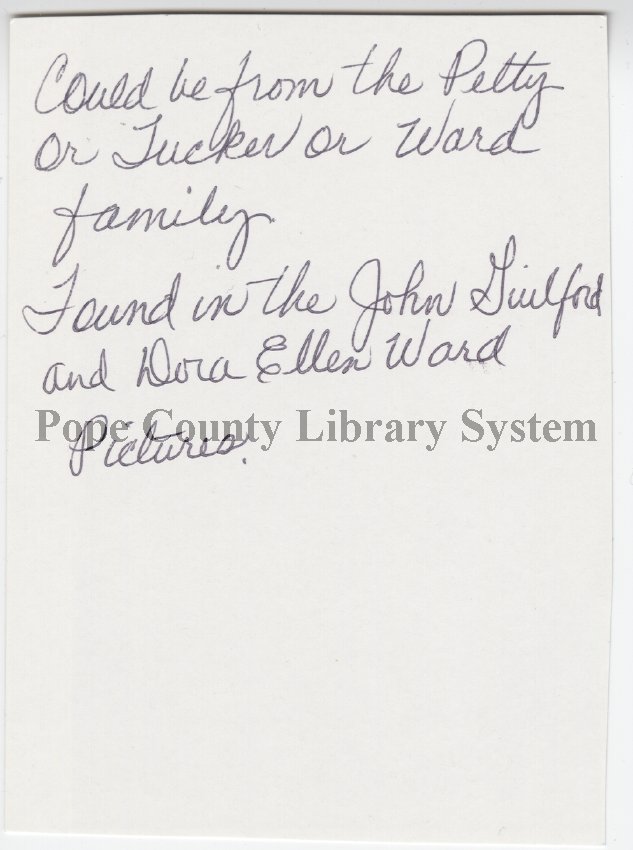 Could be from the Petty
or Tucker or Ward
family.
Found in the John Guilford
and Dora Ellen Ward
Pope County Library System
Pictures.